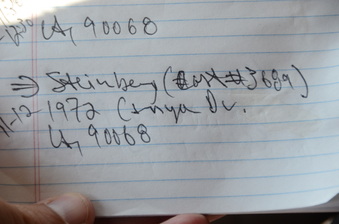 -12:30 LA, 90068
⇒ Steinberg (#3689)
11-12 1972 Canyon Dr.
LA, 90068